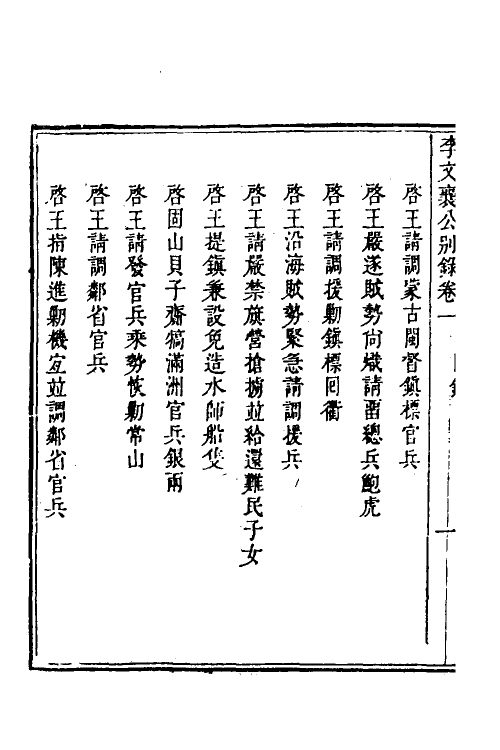 李文襄公別錄卷一 目錄 一
啓王請調蒙古閩督鎮標官兵
啓王嚴遂賊勢尚熾請畱總兵鮑虎
啓王請調援勦鎮標囘衢
啓王沿海賊勢緊急請調援兵
啓王請嚴禁旗營搶擄並給還難民子女
啓王提鎮兼設免造水師船隻
啓固山貝子齎犒滿洲官兵銀兩
啓王請發官兵乘勢恢勦常山
啓王請調鄰省官兵
啓王指陳進勦機宜竝調鄰省官兵